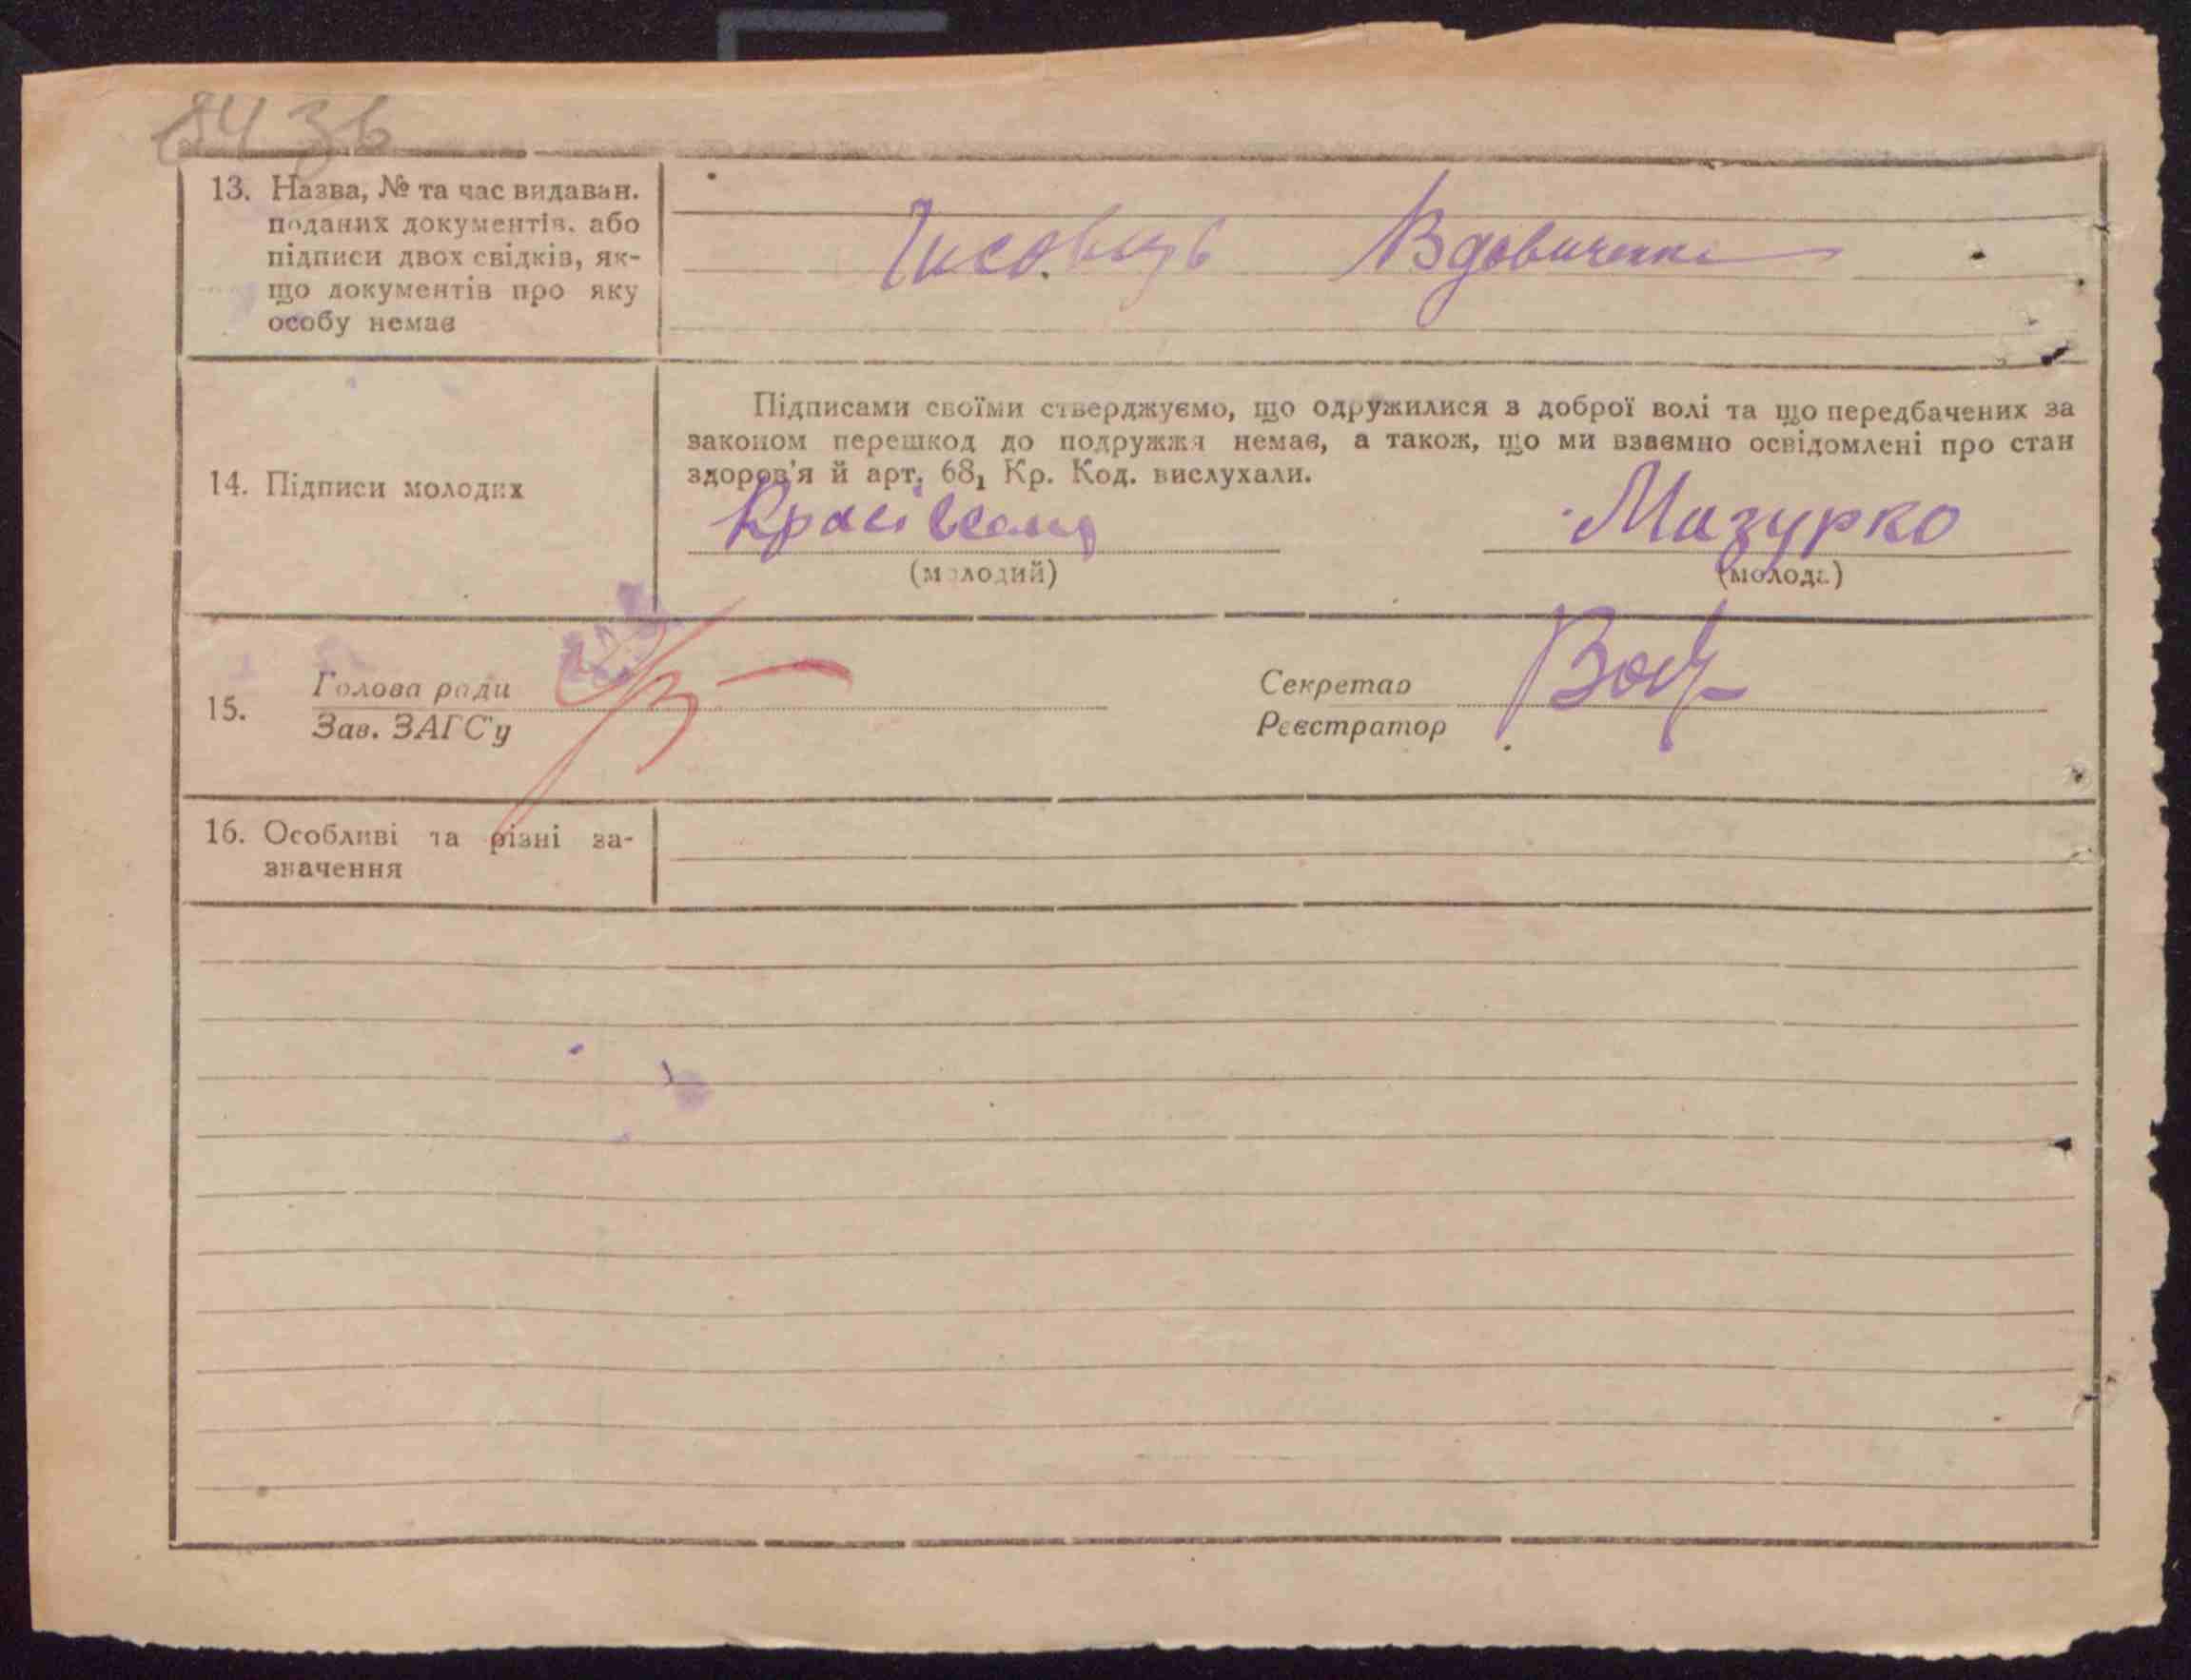 13. Назва, № та час видаван.
поданих документів, або
підписи двох свідків, як-
що документів про яку
особу немає
Вдовиченко
Підписами своїми стверджуємо, що одружилися з доброї волі та що передбачених за
законом перешкод до подружжя немає, а також, що ми взаємно освідомлені про стан
здоров'я й арт. 68₁ Кр. Код. вислухали.
14. Підписи молодих
Мазурко
(молодий) (молода)
15. Голова ради
Зав. ЗАГС'у
Секретар
Реєстратор
16. Особливі та різні за-
значення